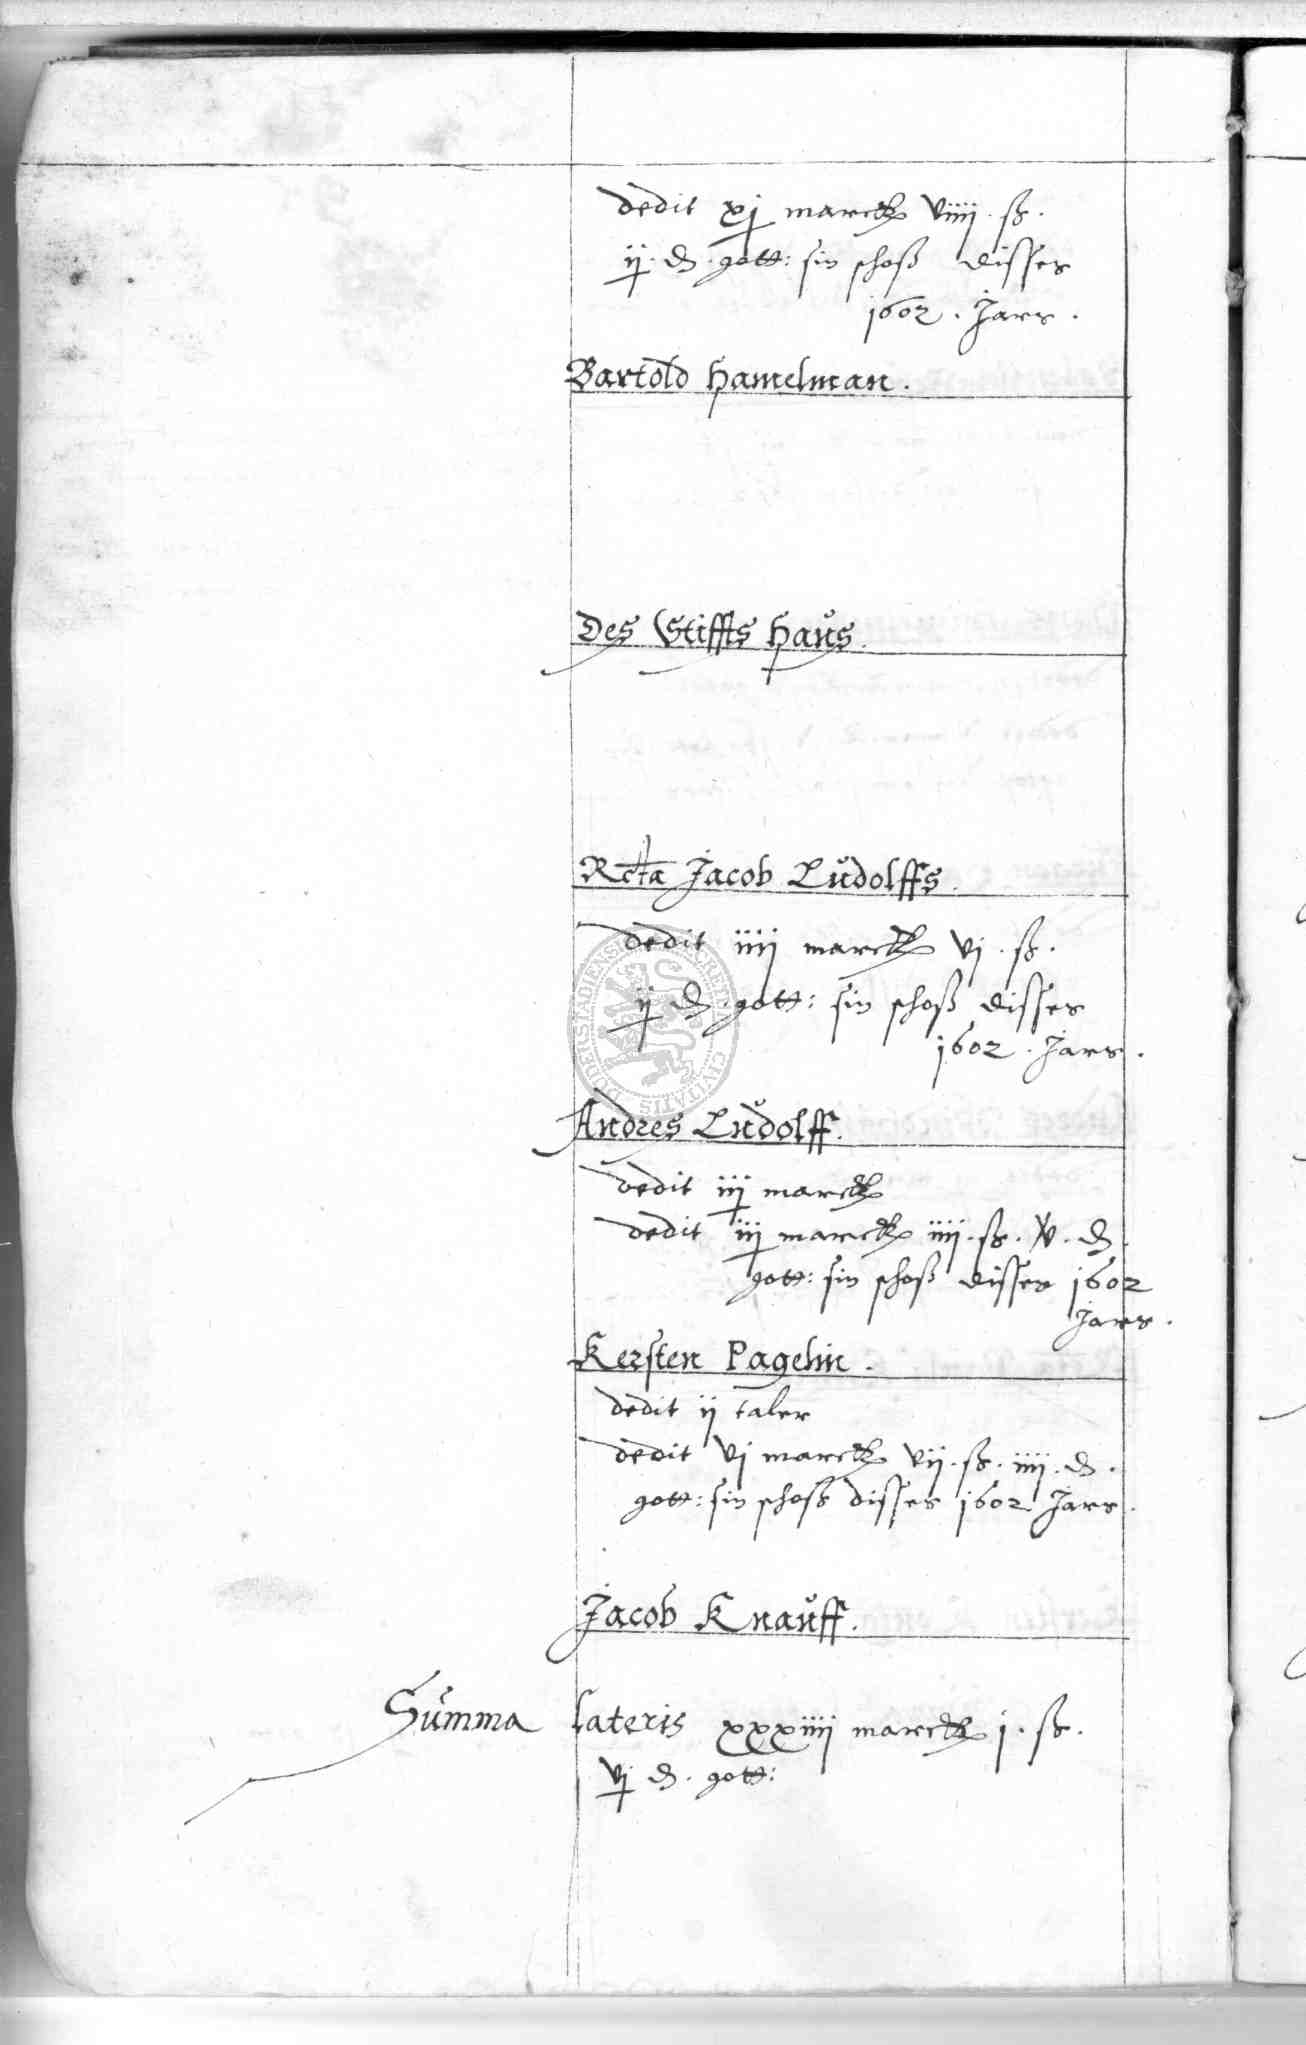 dedit xj marck viiij . ß .
ij . d . gott: sin schoß disses
1602 . Jars .
Bartold Hamelman .
Des Stiffts Haus .
Rcta Jacob Ludolffs .
dedit iiij marck vj . ß .
ij d . gott: sin schoß disses
1602 . Jars .
Andres Ludolff .
dedit iij marck
dedit iij marck iiij . ß . v . d .
gott: sin schoß disses 1602
Jars .
Kersten Pagelin .
dedit ij taler
dedit vj marck vij . ß . iiij . d .
gott: sin schoß disses 1602 Jars .
Jacob Knauff .
Summa lateris xxxiiij marck j . ß .
vj d . gott:
SECRETUM CIVITATIS DUDERSTADIENSIS